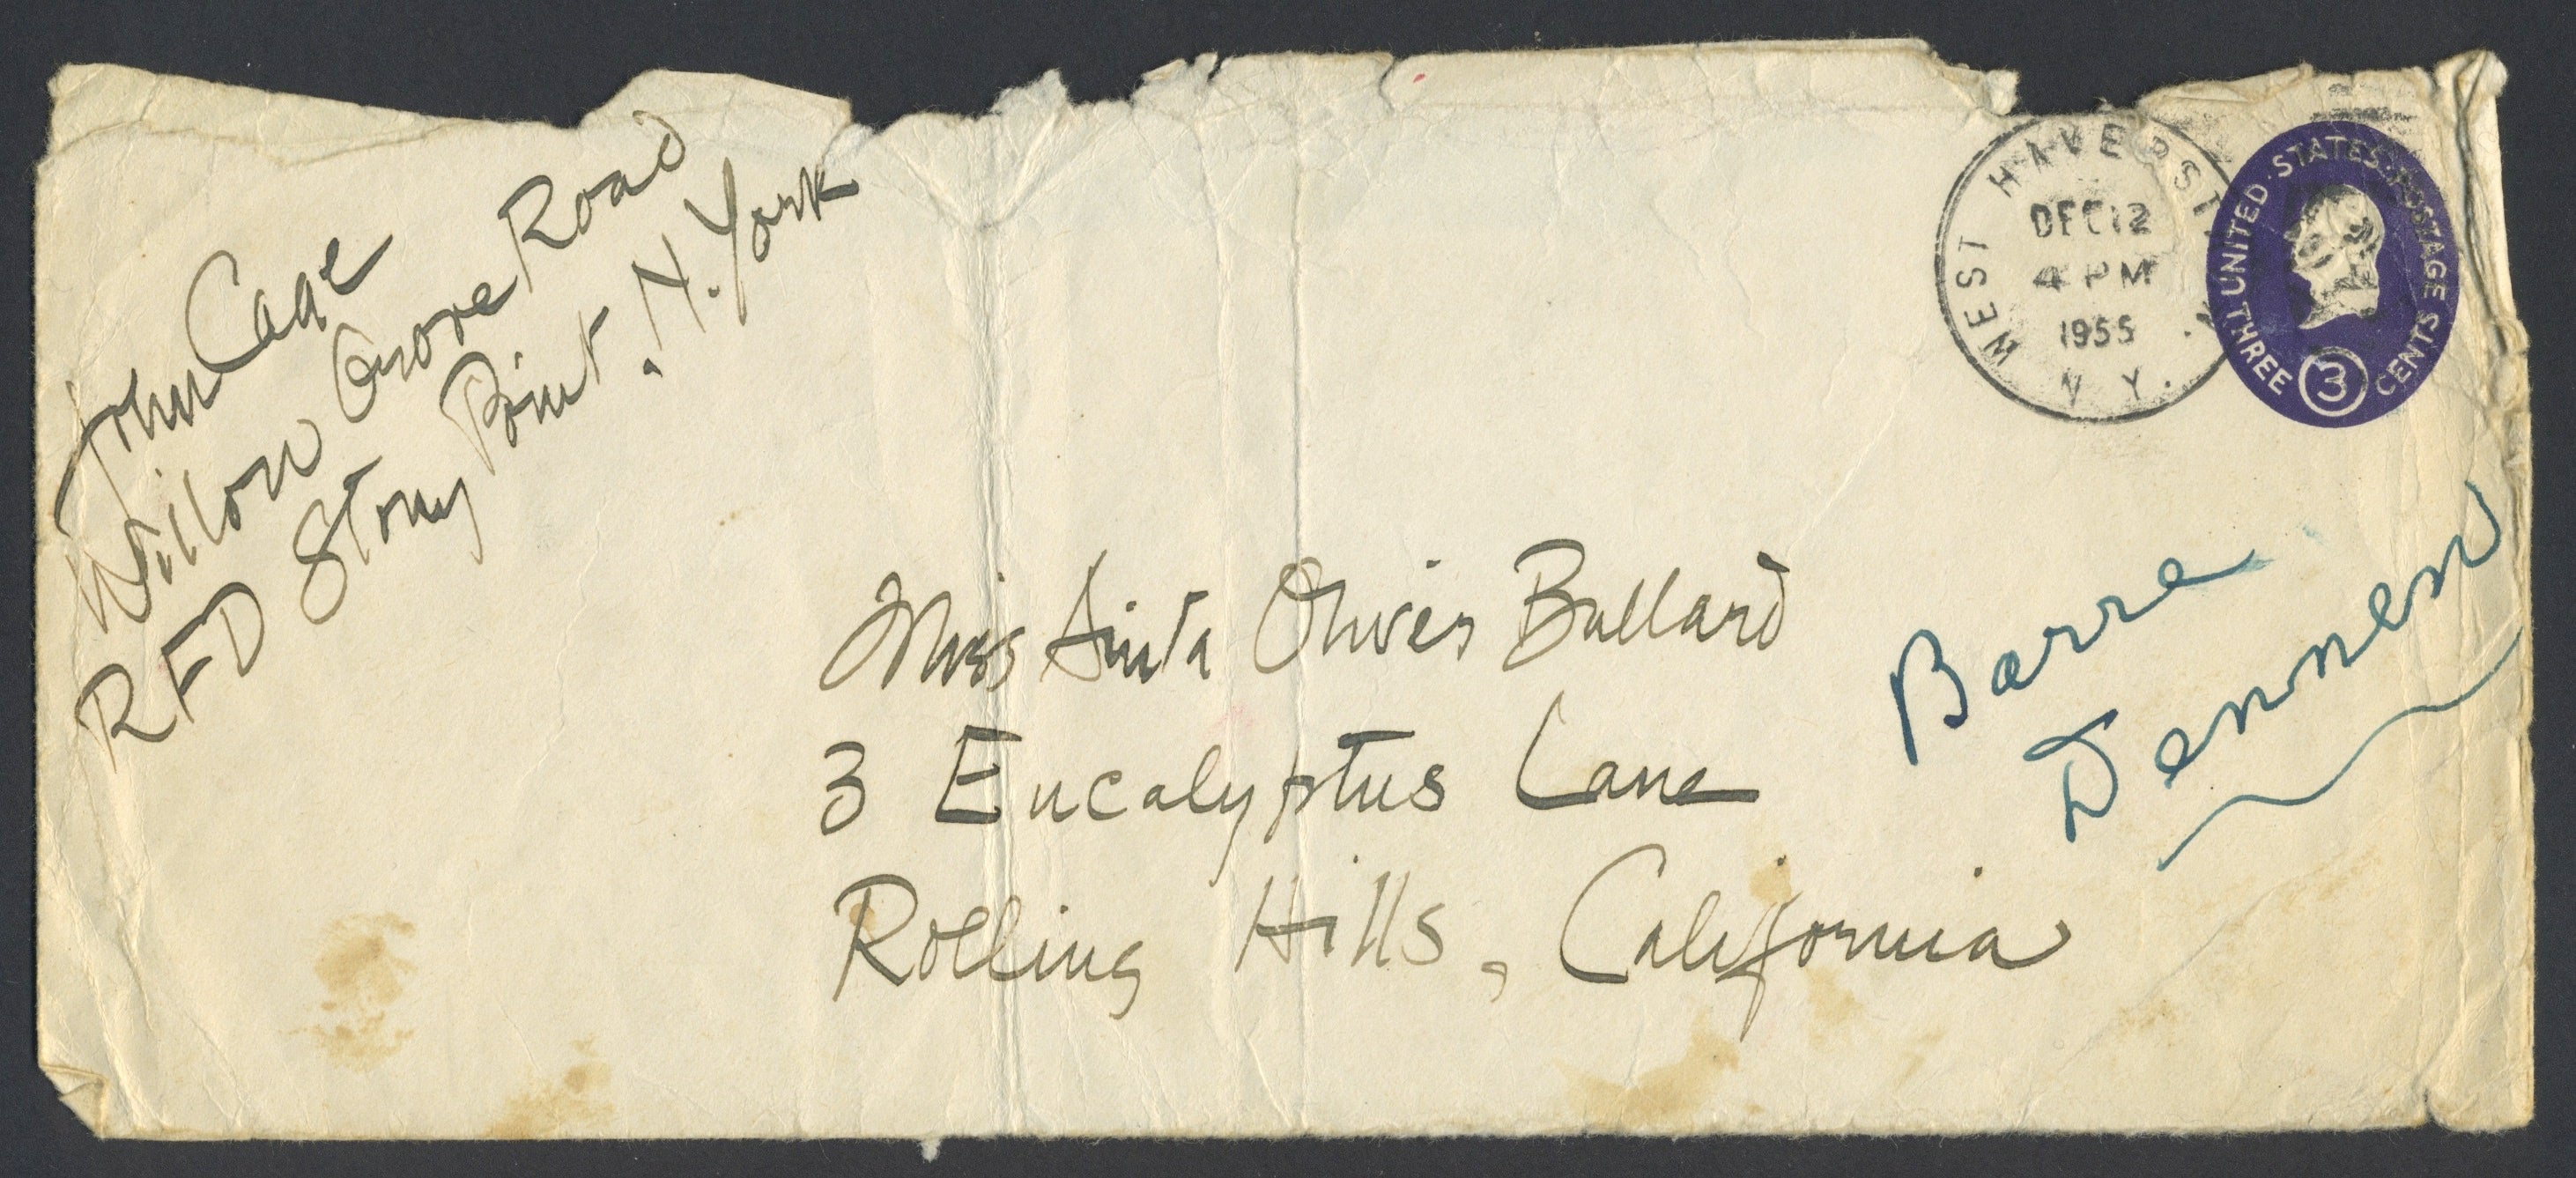 John Cage
Willow Grove Road
RFD Stony Point, N. York
WEST HAVERST
DEC 12
4 PM
1955
N. Y.
UNITED · STATES · POSTAGE
THREE 3 CENTS
Miss Oliver Bullard
3 Eucalyptus Lane
Rolling Hills, California
Barre